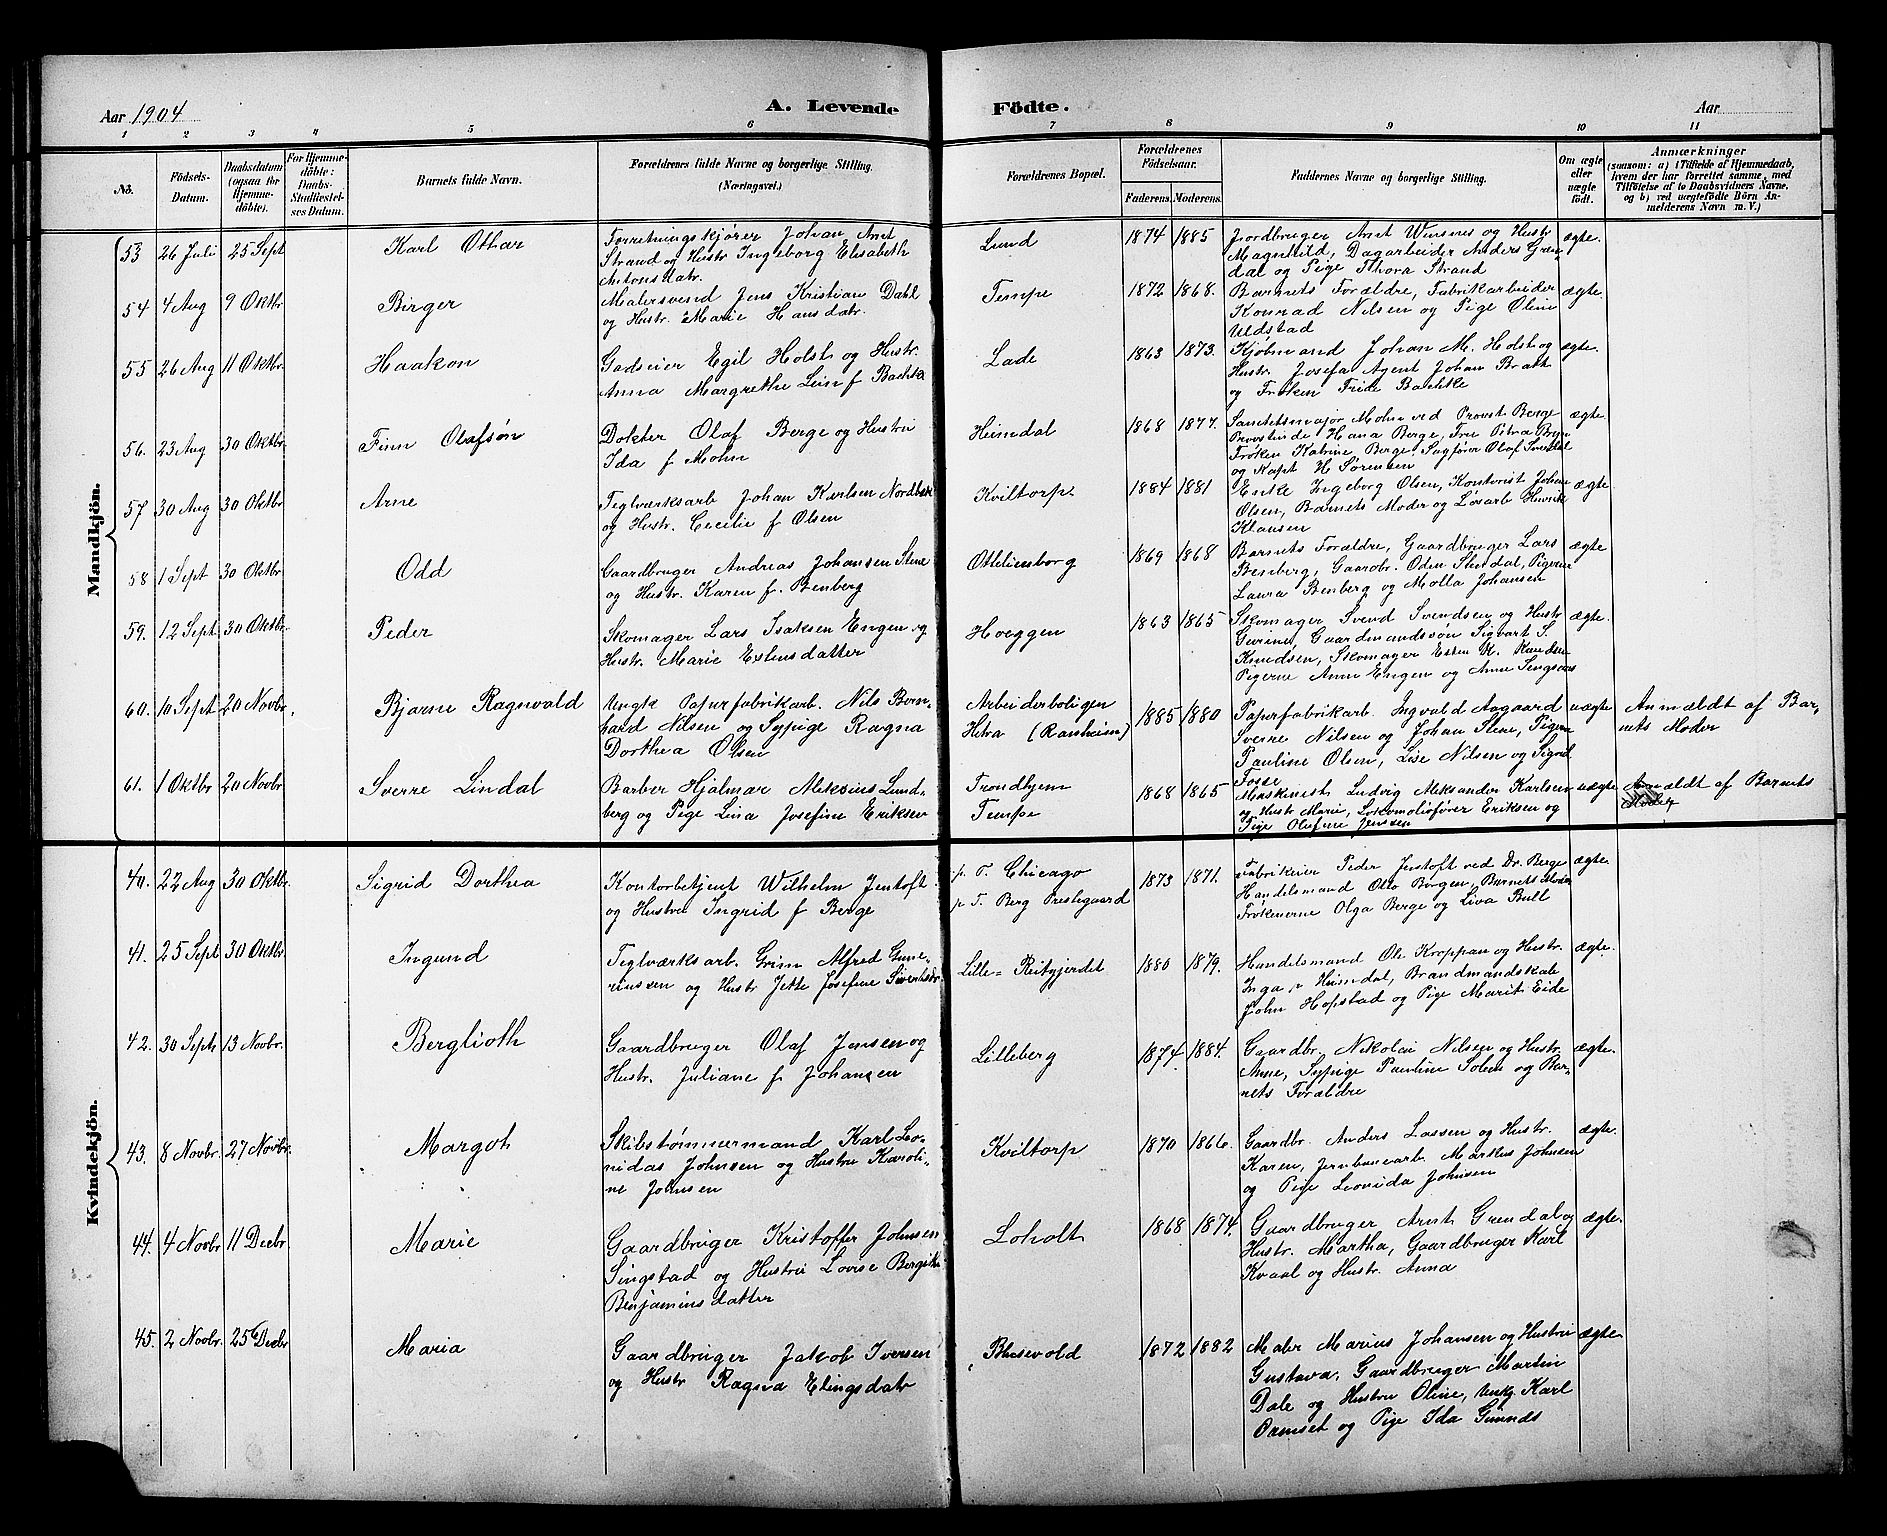 Aar 1904
A. Levende Födte.
Aar
1 2 3 4 5 6 7 8 9 10 11
No.
Födsels-
Datum.
Daabsdatum
(ogsaa for
Hjemme-
döbte).
For Hjemme-
döbte:
Daabs-
Stadfæstel-
ses Datum.
Barnets fulde Navn.
Forældrenes fulde Navne og borgerlige Stilling.
(Næringsvei.)
Forældrenes Bopæl.
Forældrenes
Födselsaar.
Faderens. Moderens.
Faddernes Navne og borgerlige Stilling.
Om ægte
eller
uægte
födt.
Anmærkninger
(saasom: a) i Tilfælde af Hjemmedaab,
hvem der har forrettet samme, med
Tilföielse af to Daabsvidners Navne,
og b) ved uægtefödte Börn An-
melderens Navn m. V.)
Mandkjön.
53 26 Juli 25 Sept Karl Othar
Forretningskjører Johan Arnt
Strand og Hustr Ingeborg Elisabeth
Antonsdatr.
Lund 1874 1885
Jordbruger Arnt Winsnes og Hustr
Magnhild, Dagarbeider Anders Gren-
dal og Pige Thora Strand
ægte.
54 4 Aug 9 Oktbr Birger
Malersvend Jens Kristian Dahl
og Hustr. Marie Hansdatr.
Tempe 1872 1868.
Barnets Forældre, Fabrikarbeider
Konrad Nilsen og Pige Oline
Udstad
ægte.
55 26 Aug 11 Oktbr. Haakon
Godseier Egil Holst og Hustr.
Anna Margrethe Lein f Bachke
Lade 1863 1873.
Kjøbmand Johan M. Holst og
Hustr. Josefa Agent Johan Bratt
og Frøken Fride Bachke
ægte.
56. 23 Aug 30 Oktbr. Finn Olafsön
Dokter Olaf Berge og Hustru
Ida f Mohn
Heimdal 1868 1877.
Sanitetsmajor Mohn ved Provst Berge
Provstinde Hana Berge, Fru Petra Bryn
Frøken Katrine Berge, Sagfører Olaf
og Kapt H Sørensen
ægte
57 30 Aug 30 Oktbr. Arne
Teglværksarb Johan Karlsen Nordbæk
og Hustr. Cecilie f Olsen
Kviltorp 1884 1881
Enke Ingeborg Olsen, Kontorist Johan
Olsen, Barnets Moder og Løsarb Henrik
Klausen
ægte
58 1 Sept 30 Oktbr. Odd
Gaardbruger Andreas Johansen Stene
og Hustr. Karen f. Benberg
Othiliensborg 1869 1868
Barnets Forældre, Gaardbruger Lars
Benberg, Gaardbr. Oden Stendal, Pigerne
Laura Benberg og Molla Johansen
ægte
59. 12 Sept. 30 Oktbr. Peder
Skomager Lars Isaksen Engen og
Hustr. Marie Estensdatter
Hoeggen 1863 1865
Skomager Svend Svendsen og Hustr
Gurine, Gaardmandssøn Sigvart S.
Knudsen, Skomager Esten K. Knudsen
Pigerne Anne Engen og Anne Singsaas
ægte.
60. 10 Sept 20 Novbr. Bjarne Ragnvald
Ungk Papirfabrikarb. Nils Bern-
hard Nilsen og Sypige Ragna
Dorthea Olsen
Arbeiderboligen
Hetra (Ranheim) 1885 1880
Papirfabrikarb. Ingvald Aagaard
Sverre Nilsen og Johan Stene, Pigerne
Pauline Olsen, Lise Nilsen og Sigrid
Fosse
uægte
Anmældt af Bar-
nets Moder
61. 1 Oktbr 20 Novbr Sverre Lindal
Barber Hjalmar Aleksius Lund-
berg og Pige Lina Josefine Eriksen
Trondhjem
Tempe 1868 1865
Maskinist Ludvig Aleksander Karlsen
og Hustr Marie, Lokomotivfører Eriksen og
Pige Olufine Jenssen
uægte
Anmældt af Barnets
Moder
Kvindekjön.
40. 22 Aug 30 Oktbr. Sigrid Dorthea
Kontorbetjent Wilhelm Jentoft
og Hustru Ingrid f Berge
p. T. Chicago
p T. Berg Prestegaard 1873 1871.
Fabrikeier Peder Jentoft ved Dr. Berge
Handelsmand Otto Borgen, Barnets Moder
Frøknerne Olga Berge og Liva Bull
ægte.
41. 25 Sept 30 Oktbr. Ingund
Teglværksarb. Grim Alfred Gune-
riussen og Hustr Jette Josefine Sivertsdtr.
Lille-Reitgjerdet 1880 1879.
Handelsmand Ole Kroppan og Hustr.
Inga p Heimdal, Brandmandskab
John Hopstad og Pige Marit Eide
ægte.
42. 30 Sept. 13 Novbr. Berglioth
Gaardbruger Olaf Jensen og
Hustr. Juliane f Johansen
Lilleberg 1874. 1884.
Gaardbr. Nikolai Nilsen og Hustr
Anne, Sypige Pauline Solem og Bar-
nets Forældre
ægte.
43. 8 Novbr. 27 Novbr. Margoth
Skibstømmermand Karl Leo-
nidas Johnsen og Hustru Karoli-
ne Johnsen
Kviltorp 1870 1866.
Gaardbr. Anders Lassen og Hustr.
Karen, Jernbanearb. Markus Johnsen
og Pige Leovida Johnsen
ægte.
44. 4 Novbr 11 Decbr Marie
Gaardbruger Kristoffer Johnsen
Singstad og Hustru Lovise Bergitte
Benjaminsdatter
Loholt 1868 1874.
Gaardbruger Arnt Grendal og
Hustr. Martha, Gaardbruger Karl
Kvaal og Hustr. Anna
ægte.
45. 2 Novbr. 25 Decbr Maria
Gaardbruger Jakob Iversen
og Hustr Ragna Elingsdatr
Blusevold 1872 1882
Maler Marius Johansen og Hustru
Gustava, Gaardbruger Martin
Dale og Hustru Oline, Ungk. Karl
Damset og Pige Ida
ægte.